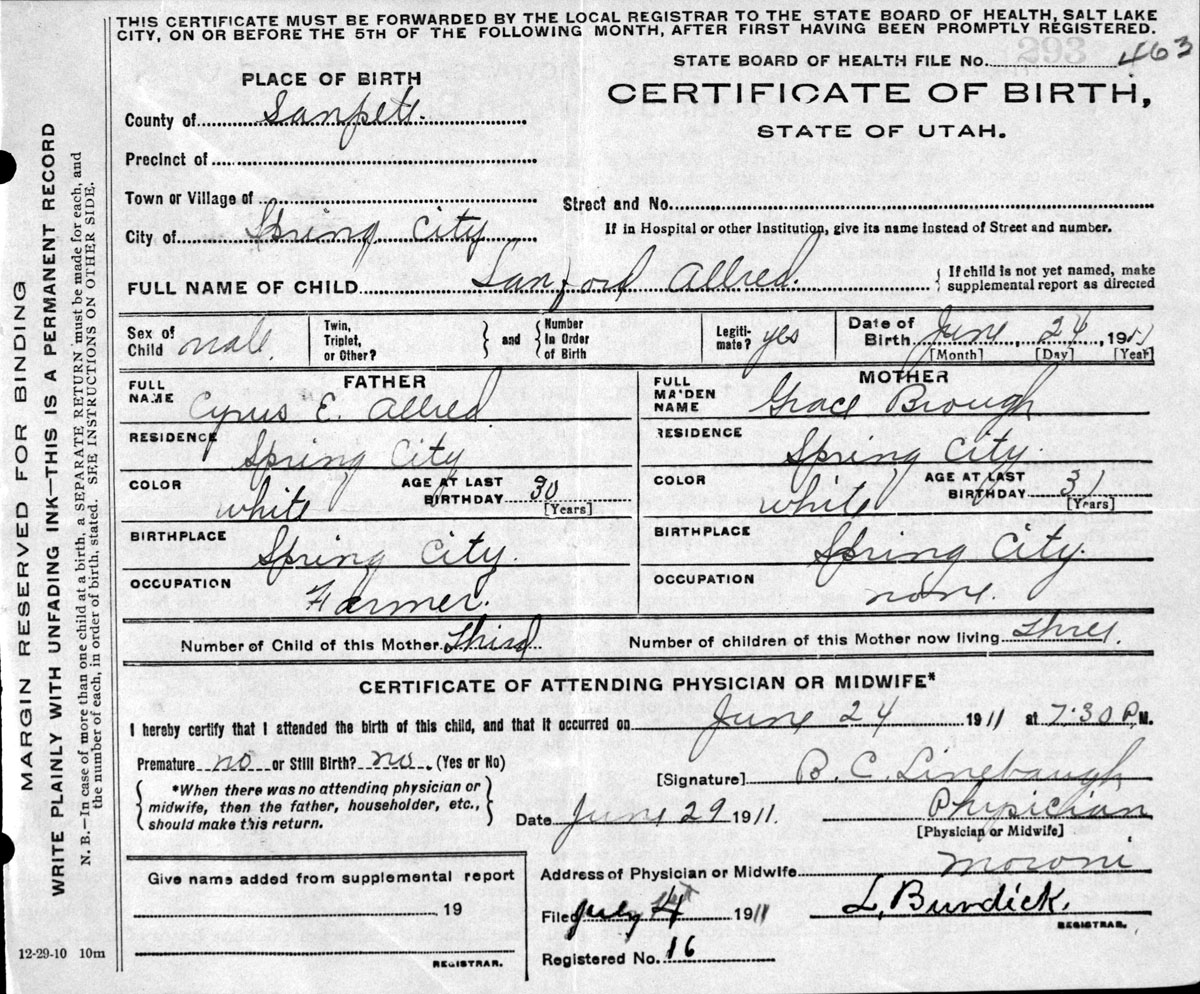 THIS CERTIFICATE MUST BE FORWARDED BY THE LOCAL REGISTRAR TO THE STATE BOARD OF HEALTH, SALT LAKE
CITY, ON OR BEFORE THE 5TH OF THE FOLLOWING MONTH, AFTER FIRST HAVING BEEN PROMPTLY REGISTERED.
293
STATE BOARD OF HEALTH FILE No. 463
PLACE OF BIRTH
CERTIFICATE OF BIRTH,
STATE OF UTAH.
County of Sanpete.
Precinct of
Town or Village of
Street and No.
City of Spring City
If in Hospital or other Institution, give its name instead of Street and number.
FULL NAME OF CHILD Sanford Allred.
{ If child is not yet named, make
supplemental report as directed
Sex of
Child male.
Twin,
Triplet,
or Other?
} and {
Number
in Order
of Birth
Legiti-
mate? yes
Date of
Birth June, 24, 1911
[Month] [Day] [Year]
FATHER
FULL
NAME Cyrus E. Allred
RESIDENCE Spring City
COLOR white
AGE AT LAST
BIRTHDAY 30
[Years]
BIRTHPLACE Spring City.
OCCUPATION Farmer.
MOTHER
FULL
MAIDEN
NAME Grace Brough
RESIDENCE Spring City.
COLOR white
AGE AT LAST
BIRTHDAY 31
[Years]
BIRTHPLACE Spring City.
OCCUPATION none.
Number of Child of this Mother Third
Number of children of this Mother now living Three.
CERTIFICATE OF ATTENDING PHYSICIAN OR MIDWIFE*
I hereby certify that I attended the birth of this child, and that it occurred on June 24 1911 at 7:30 P.M.
Premature no or Still Birth? no. (Yes or No)
{ *When there was no attending physician or
midwife, then the father, householder, etc.,
should make this return. }
[Signature] B. C. Linebaugh
Date June 29 1911.
Physician
[Physician or Midwife]
Address of Physician or Midwife Moroni
Give name added from supplemental report
, 19
REGISTRAR.
Filed July 4 1911
L. Burdick.
REGISTRAR.
Registered No. 16
12-29-10 10m
MARGIN RESERVED FOR BINDING
WRITE PLAINLY WITH UNFADING INK—THIS IS A PERMANENT RECORD
N. B.—In case of more than one child at a birth, a SEPARATE RETURN must be made for each, and
the number of each, in order of birth, stated. SEE INSTRUCTIONS ON OTHER SIDE.